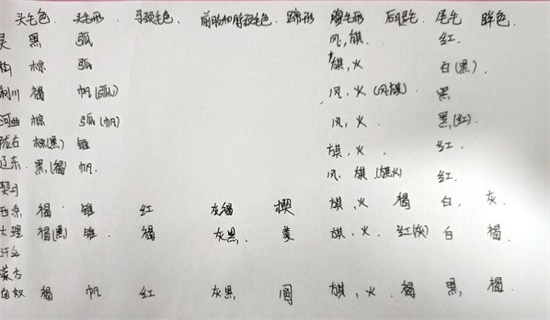 头毛色 头毛形 马颈毛色 前胸和脖颈毛色 蹄形 胸毛形 后腿毛 尾毛 眸色
黑 弧 风,旗 红
棕 弧 旗,火 白(黑)
利川 褐 帆(弧) 风,火(风旗) 黑
河曲 棕 弧(帆) 风,火 黑(红)
陇右 棕(黑) 锥 旗,火 红
辽东 黑(褐) 帆 风 旗(旗火) 红
契丹
西凉 褐 锥 红 灰褐 楔 旗,火 褐 白 灰
大理 褐(黑) 锥 褐 灰黑 菱 旗,火 红(灰) 白 褐
汗血
蒙古
匈奴 褐 帆 红 灰黑 圆 旗,火 褐 黑 褐